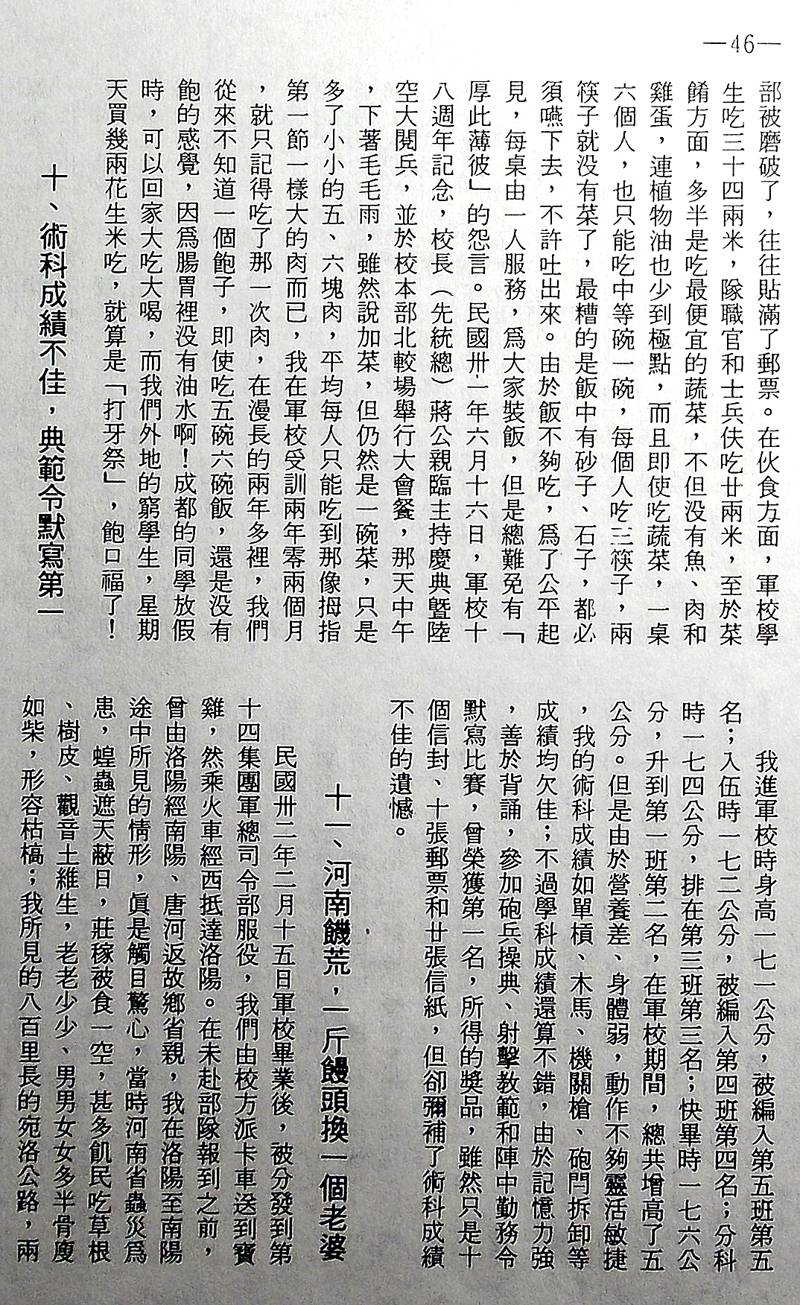 —46—
部被磨破了，往往貼滿了郵票。在伙食方面，軍校學
生吃三十四兩米，隊職官和士兵伕吃廿兩米，至於菜
餚方面，多半是吃最便宜的蔬菜，不但没有魚、肉和
雞蛋，連植物油也少到極點，而且即使吃蔬菜，一桌
六個人，也只能吃中等碗一碗，每個人吃三筷子，兩
筷子就没有菜了，最糟的是飯中有砂子、石子，都必
須嚥下去，不許吐出來。由於飯不夠吃，爲了公平起
見，每桌由一人服務，爲大家裝飯，但是總難免有「
厚此薄彼」的怨言。民國卅一年六月十六日，軍校十
八週年記念，校長（先統總）蔣公親臨主持慶典暨陸
空大閱兵，並於校本部北較場舉行大會餐，那天中午
，下著毛毛雨，雖然說加菜，但仍然是一碗菜，只是
多了小小的五、六塊肉，平均每人只能吃到那像拇指
第一節一樣大的肉而已，我在軍校受訓兩年零兩個月
，就只記得吃了那一次肉，在漫長的兩年多裡，我們
從來不知道一個飽子，即使吃五碗六碗飯，還是没有
飽的感覺，因爲腸胃裡没有油水啊！成都的同學放假
時，可以回家大吃大喝，而我們外地的窮學生，星期
天買幾兩花生米吃，就算是「打牙祭」，飽口福了！
十、術科成績不佳，典範令默寫第一
我進軍校時身高一七一公分，被編入第五班第五
名；入伍時一七二公分，被編入第四班第四名；分科
時一七四公分，排在第三班第三名；快畢時一七六公
分，升到第一班第二名，在軍校期間，總共增高了五
公分。但是由於營養差、身體弱，動作不夠靈活敏捷
，我的術科成績如單槓、木馬、機關槍、砲閂拆卸等
成績均欠佳；不過學科成績還算不錯，由於記憶力強
，善於背誦，參加砲兵操典、射擊教範和陣中勤務令
默寫比賽，曾榮獲第一名，所得的獎品，雖然只是十
個信封、十張郵票和廿張信紙，但卻彌補了術科成績
不佳的遺憾。
十一、河南饑荒，一斤饅頭換一個老婆
民國卅二年二月十五日軍校畢業後，被分發到第
十四集團軍總司令部服役，我們由校方派卡車送到寶
雞，然乘火車經西抵達洛陽。在未赴部隊報到之前，
曾由洛陽經南陽、唐河返故鄉省親，我在洛陽至南陽
途中所見的情形，眞是觸目驚心，當時河南省蟲災爲
患，蝗蟲遮天蔽日，莊稼被食一空，甚多飢民吃草根
、樹皮、觀音土維生，老老少少、男男女女多半骨廋
如柴，形容枯槁；我所見的八百里長的宛洛公路，兩